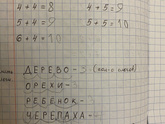 4+4=8 4+5=9
5+4=9 5+5=10
6+4=10
ДЕРЕВО-3
ОРЕХИ-3
РЕБЁНОК-
ЧЕРЕПАХА-